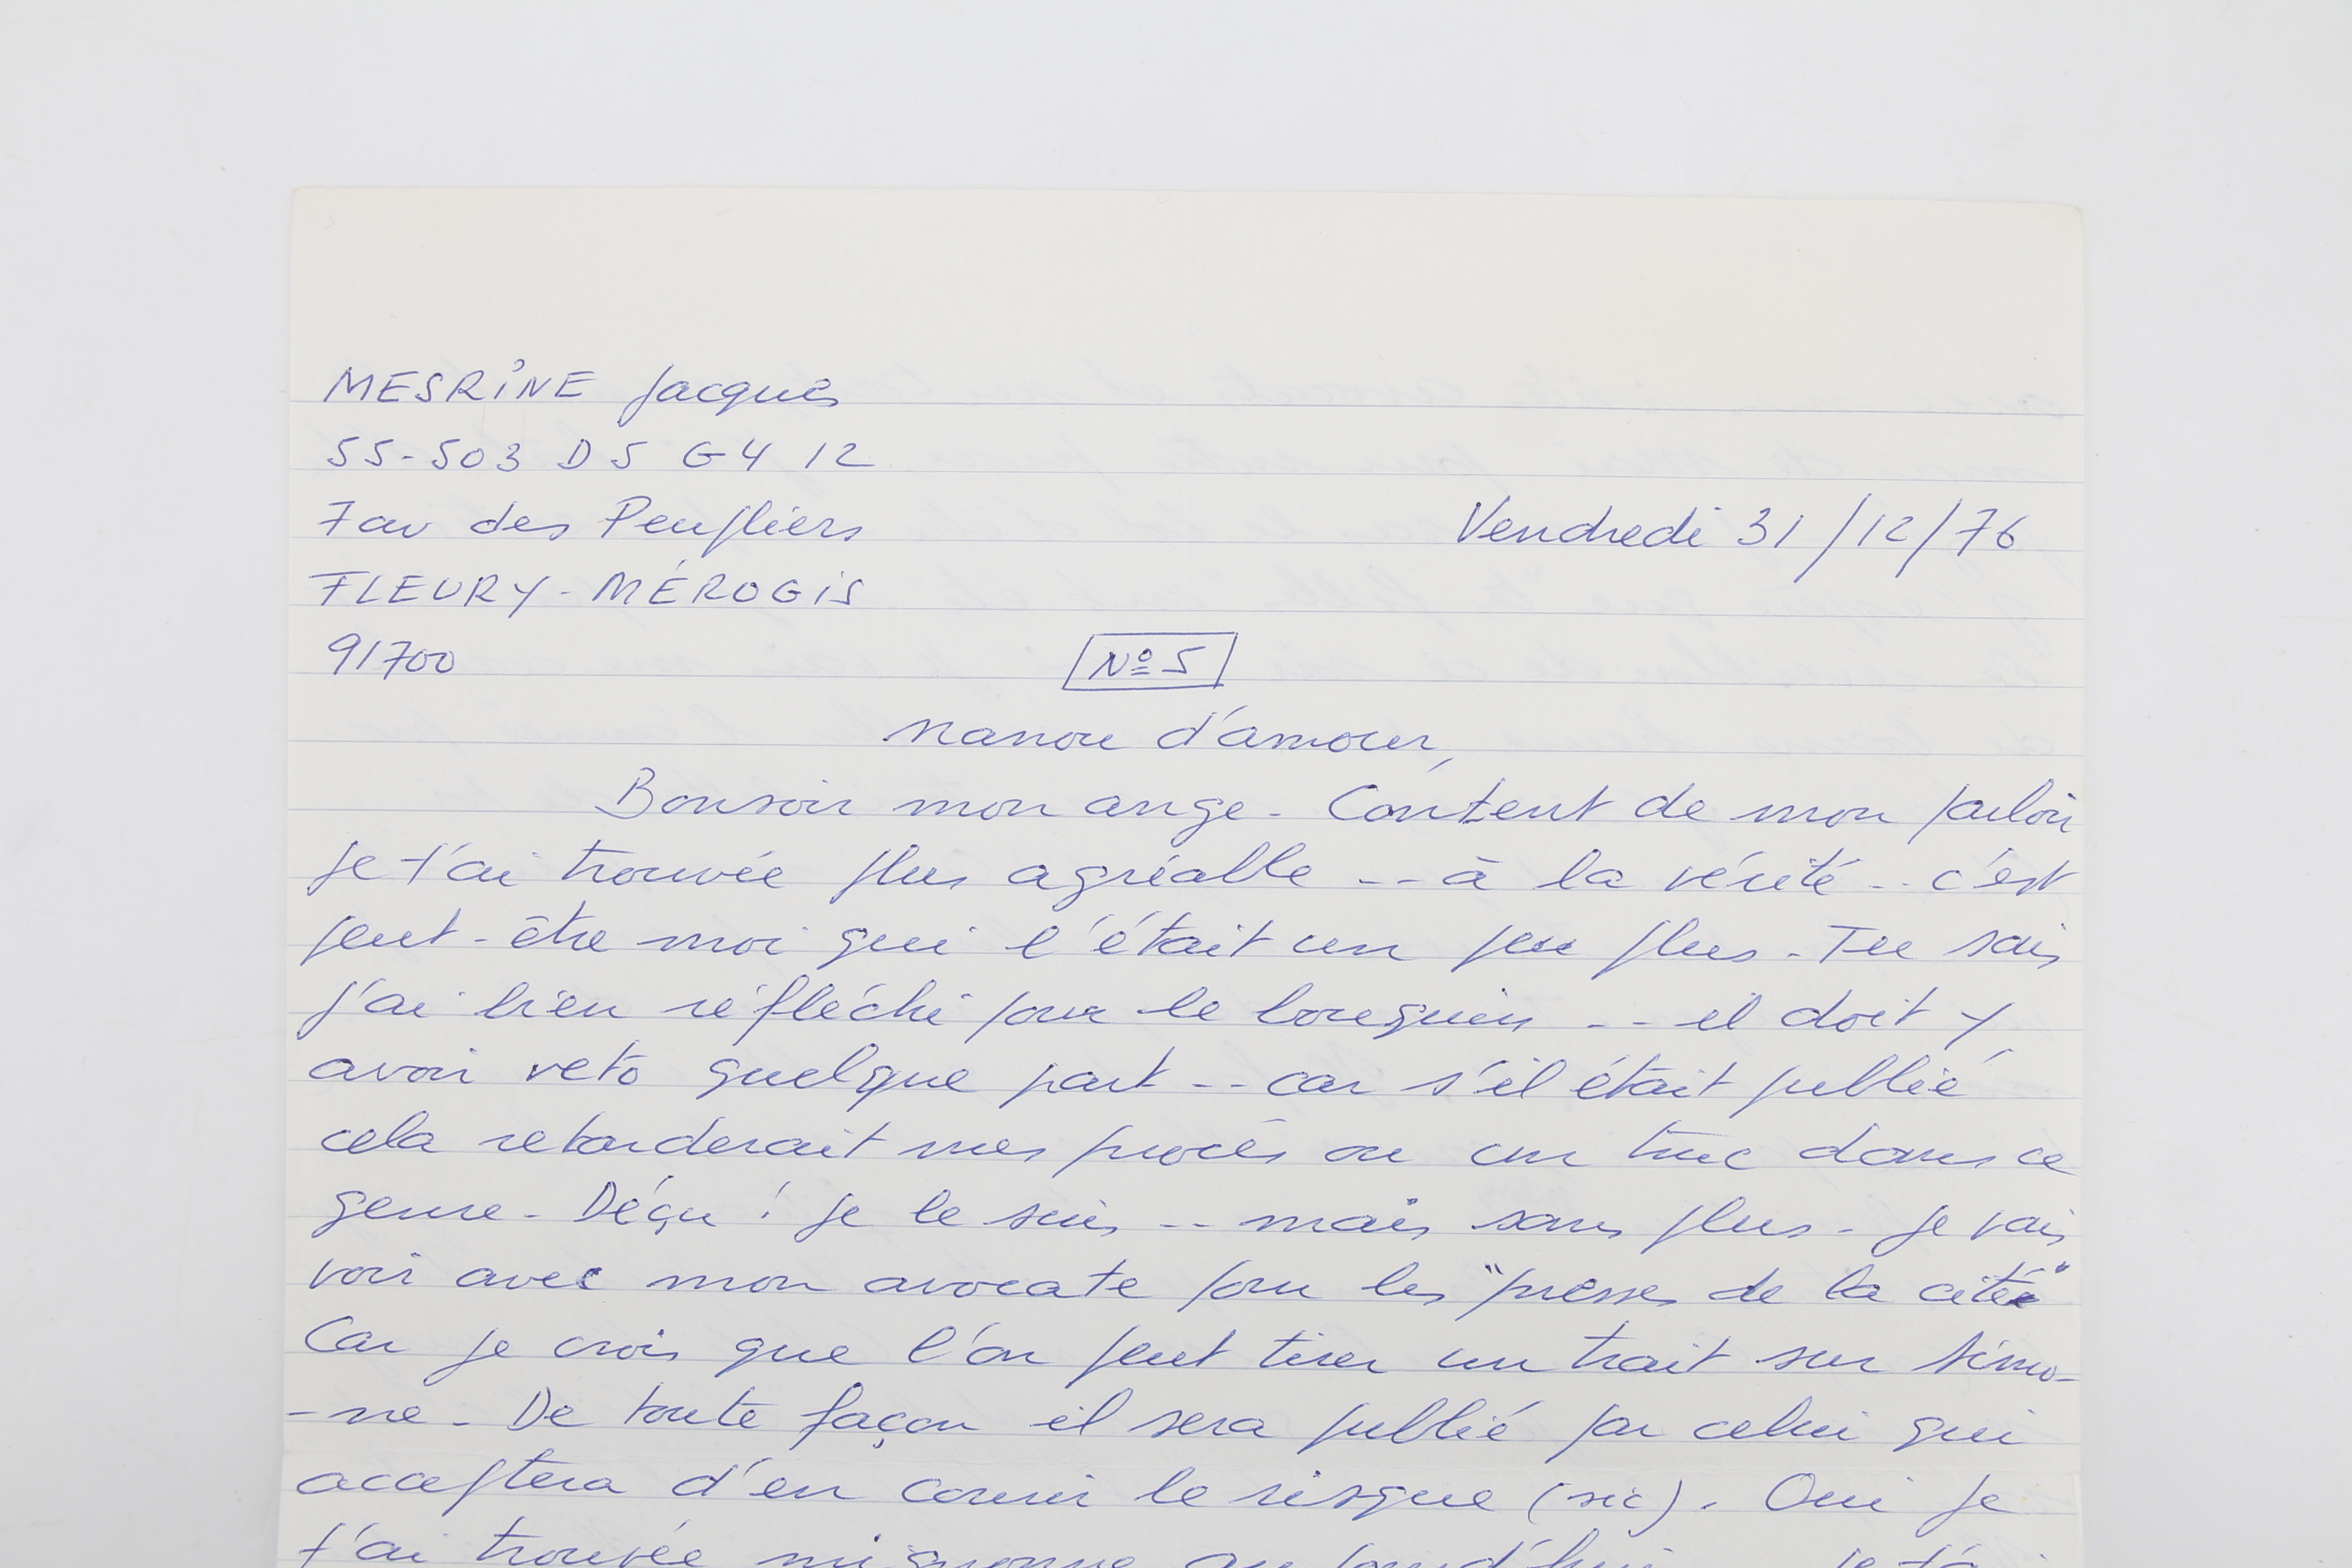 MESRINE Jacques
55-503 D5 G4 12
7 av des Peupliers
Vendredi 31/12/76
FLEURY-MÉROGIS
91700
Nº 5
nanou d'amour,
Bonsoir mon ange - Content de mon parloir
je t'ai trouvée plus agréable -- à la vérité -- c'est
peut-être moi qui l'était un peu plus - Tu sais
j'ai bien réfléchi pour le bouquin -- il doit y
avoir veto quelque part -- car s'il était publié
cela retarderait mes procès ou un truc dans ce
genre - Déçu ! je le suis -- mais sans plus - je vais
voir avec mon avocate pour les "presses de la cité"
Car je crois que l'on peut tirer un trait sur simo-
-ne - De toute façon il sera publié par celui qui
acceptera d'en courir le risque (sic). Oui je
t'ai trouvée mignonne aujourd'hui je t'ai